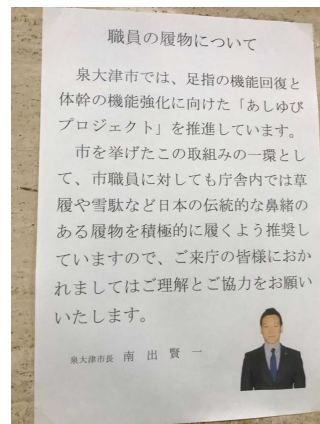 職員の履物について
泉大津市では、足指の機能回復と
体幹の機能強化に向けた「あしゆび
プロジェクト」を推進しています。
市を挙げたこの取組みの一環とし
て、市職員に対しても庁舎内では草
履や雪駄など日本の伝統的な鼻緒の
ある履物を積極的に履くよう推奨し
ていますので、ご来庁の皆様におか
れましてはご理解とご協力をお願い
いたします。
泉大津市長 南出賢一